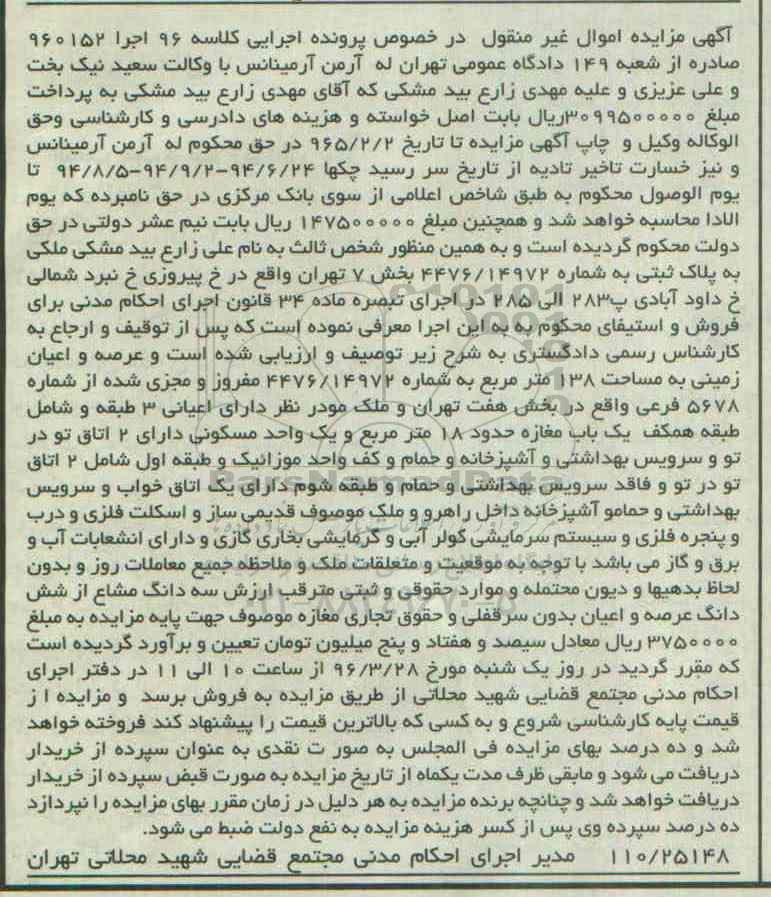 آگهی مزایده اموال غیر منقول در خصوص پرونده اجرایی کلاسه ۹۶ اجرا ۹۶۰۱۵۲
صادره از شعبه ۱۴۹ دادگاه عمومی تهران له آرمن آرمیناس با وکالت سعید نیک بخت
و علی عزیزی و علیه مهدی زارع بید مشکی که آقای مهدی زارع بید مشکی به پرداخت
مبلغ ۳۰۹۹۵۰۰۰۰۰ریال بابت اصل خواسته و هزینه های دادرسی و کارشناسی وحق
الوکاله وکیل و چاپ آگهی مزایده تا تاریخ ۹۶۵/۲/۲ در حق محکوم له آرمن آرمیناس
و نیز خسارت تاخیر تادیه از تاریخ سر رسید چکها ۹۴/۶/۲۴-۹۴/۹/۲-۹۴/۸/۵ تا
یوم الوصول محکوم به طبق شاخص اعلامی از سوی بانک مرکزی در حق نامبرده که یوم
الادا محاسبه خواهد شد و همچنین مبلغ ۱۴۷۵۰۰۰۰۰ ریال بابت نیم عشر دولتی در حق
دولت محکوم گردیده است و به همین منظور شخص ثالث به نام علی زارع بید مشکی ملکی
به پلاک ثبتی به شماره ۴۴۷۶/۱۴۹۷۲ بخش ۷ تهران واقع در خ پیروزی خ نبرد شمالی
خ داود آبادی پ۲۸۳ الی ۲۸۵ در اجرای تبصره ماده ۳۴ قانون اجرای احکام مدنی برای
فروش و استیفای محکوم به به این اجرا معرفی نموده است که پس از توقیف و ارجاع به
کارشناس رسمی دادگستری به شرح زیر توصیف و ارزیابی شده است و عرصه و اعیان
زمینی به مساحت ۱۳۸ متر مربع به شماره ۴۴۷۶/۱۴۹۷۲ مفروز و مجزی شده از شماره
۵۶۷۸ فرعی واقع در بخش هفت تهران و ملک مودر نظر دارای اعیانی ۳ طبقه و شامل
طبقه همکف یک باب مغازه حدود ۱۸ متر مربع و یک واحد مسکونی دارای ۲ اتاق تو در
تو و سرویس بهداشتی و آشپزخانه و حمام و کف واحد موزائیک و طبقه اول شامل ۲ اتاق
تو در تو و فاقد سرویس بهداشتی و حمام و طبقه شوم دارای یک اتاق خواب و سرویس
بهداشتی و حمامو آشپزخانه داخل راهرو و ملک موصوف قدیمی ساز و اسکلت فلزی و درب
و پنجره فلزی و سیستم سرمایشی کولر آبی و گرمایشی بخاری گازی و دارای انشعابات آب و
برق و گاز می باشد با توجه به موقعیت و متعلقات ملک و ملاحظه جمیع معاملات روز و بدون
لحاظ بدهیها و دیون محتمله و موارد حقوقی و ثبتی مترقب ارزش سه دانگ مشاع از شش
دانگ عرصه و اعیان بدون سرقفلی و حقوق تجاری مغازه موصوف جهت پایه مزایده به مبلغ
۳۷۵۰۰۰۰ ریال معادل سیصد و هفتاد و پنج میلیون تومان تعیین و برآورد گردیده است
که مقرر گردید در روز یک شنبه مورخ ۹۶/۳/۲۸ از ساعت ۱۰ الی ۱۱ در دفتر اجرای
احکام مدنی مجتمع قضایی شهید محلاتی از طریق مزایده به فروش برسد و مزایده ا ز
قیمت پایه کارشناسی شروع و به کسی که بالاترین قیمت را پیشنهاد کند فروخته خواهد
شد و ده درصد بهای مزایده فی المجلس به صور ت نقدی به عنوان سپرده از خریدار
دریافت می شود و مابقی ظرف مدت یکماه از تاریخ مزایده به صورت قبض سپرده از خریدار
دریافت خواهد شد و چنانچه برنده مزایده به هر دلیل در زمان مقرر بهای مزایده را نپردازد
ده درصد سپرده وی پس از کسر هزینه مزایده به نفع دولت ضبط می شود.
۱۱۰/۲۵۱۴۸ مدیر اجرای احکام مدنی مجتمع قضایی شهید محلاتی تهران
ParsNamadData